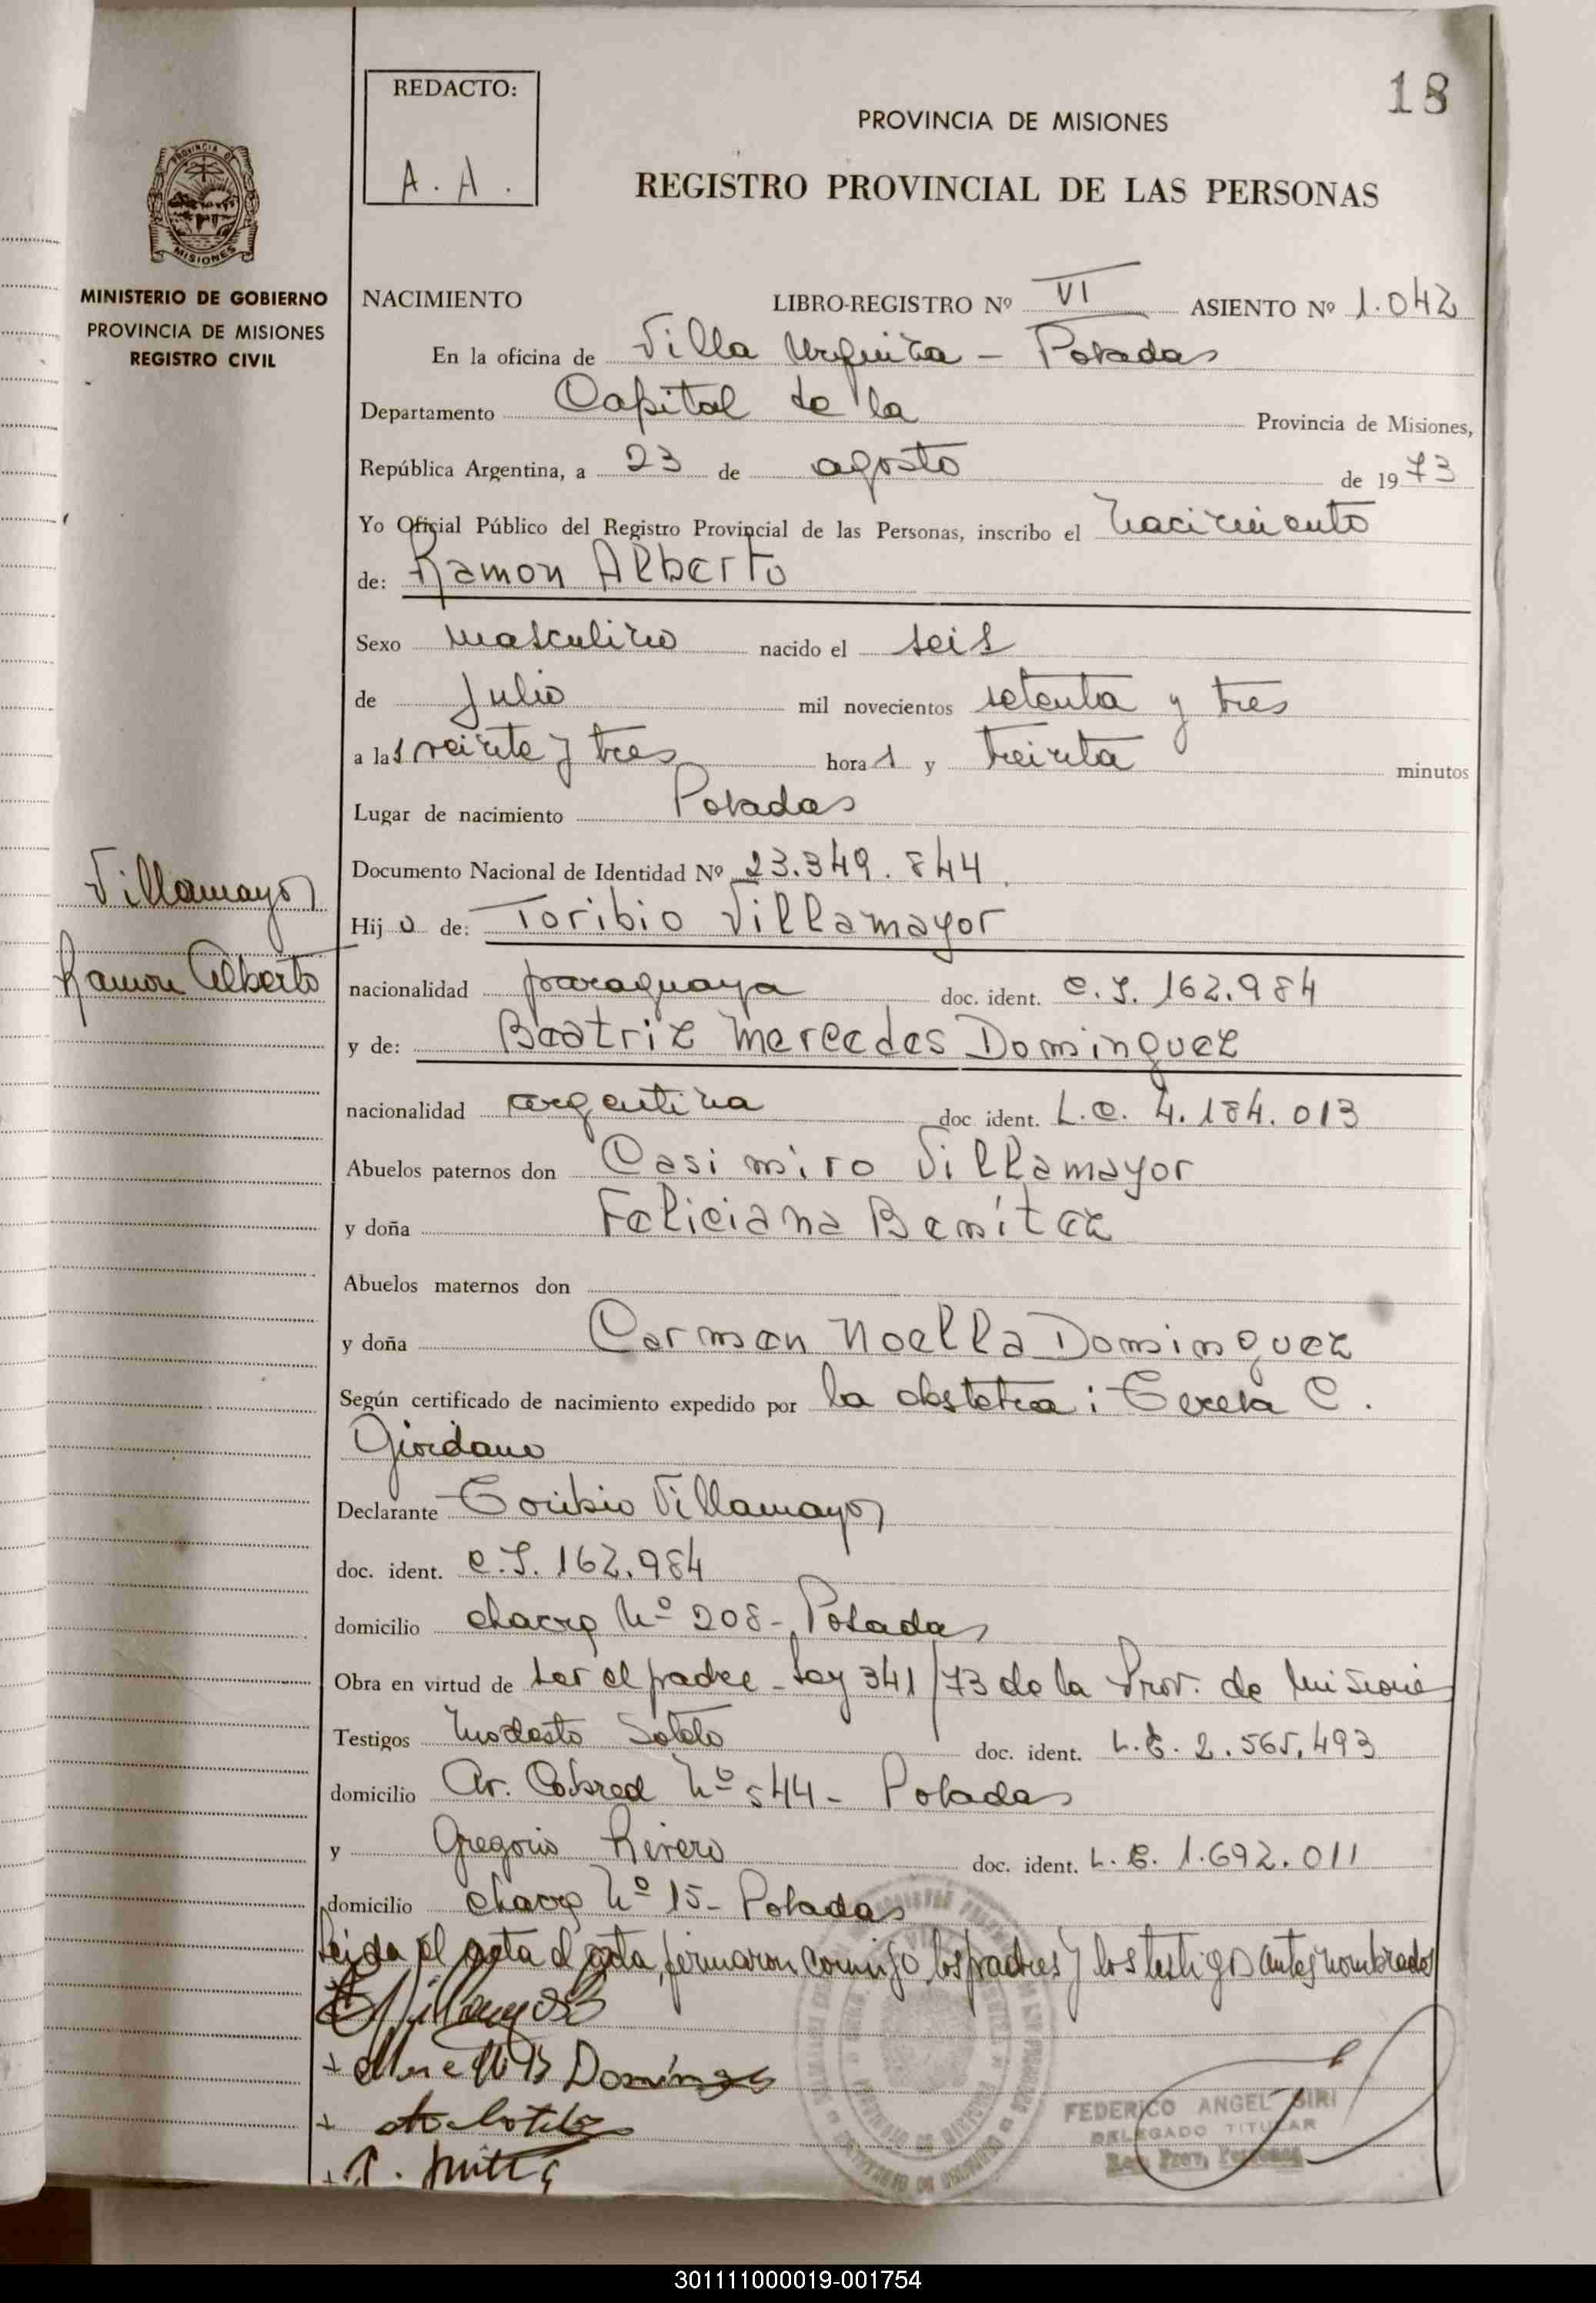 18
REDACTO:
A. A.
PROVINCIA DE MISIONES
REGISTRO PROVINCIAL DE LAS PERSONAS
PROVINCIA DE
MISIONES
MINISTERIO DE GOBIERNO
PROVINCIA DE MISIONES
REGISTRO CIVIL
NACIMIENTO LIBRO-REGISTRO Nº VI ASIENTO Nº 1.042
En la oficina de Villa Urquiza - Posadas
Departamento Capital de la Provincia de Misiones,
República Argentina, a 23 de agosto de 1973
Yo Oficial Público del Registro Provincial de las Personas, inscribo el nacimiento
de: Ramon Alberto
Sexo masculino nacido el seis
de Julio mil novecientos setenta y tres
a las veinte y tres horas y treinta minutos
Lugar de nacimiento Posadas
Documento Nacional de Identidad Nº 23.349.844
Villamayor
Hijo de: Toribio Villamayor
Ramon Alberto
nacionalidad paraguaya doc. ident. C.I. 162.984
y de: Beatriz Mercedes Dominguez
nacionalidad argentina doc ident. L.C. 4.184.013
Abuelos paternos don Casimiro Villamayor
y doña Feliciana Benítez
Abuelos maternos don
y doña Carmen Noella Dominguez
Según certificado de nacimiento expedido por la obstetra: Teresa C.
Giordano
Declarante Toribio Villamayor
doc. ident. C.I. 162.984
domicilio chacra Nº 208 - Posadas
Obra en virtud de ser el padre - Ley 341/73 de la Prov. de Misiones
Testigos Modesto Sotelo doc. ident. L.E. 2.565.493
domicilio Av. Cabred Nº 544 - Posadas
y Gregorio Rivero doc. ident. L.E. 1.692.011
domicilio chacra Nº 15 - Posadas
Leida el acta, firmaron conmigo los padres y los testigos antes nombrados
FEDERICO ANGEL SIRI
DELEGADO TITULAR
Reg. Prov. Personas
301111000019-001754